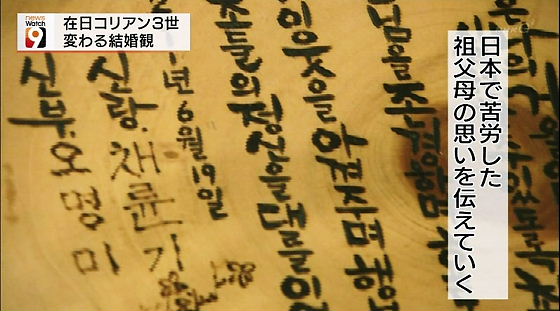 news
Watch
9
在日コリアン3世
変わる結婚観
日本で苦労した
祖父母の思いを伝えていく
이웃을 아껴주며 행
조들의 정신을 대를이
년 6월 19일
신랑. 채륜기
신부. 오명미